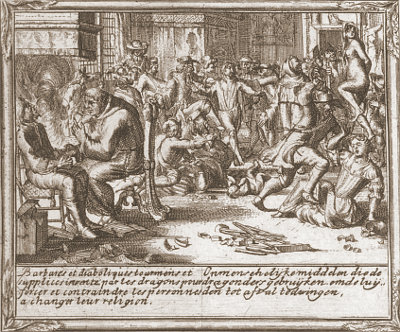 Barbares et diaboliques tourmens et Onmenschelijke middelen die de
supplices inventz par les dragons pour dragonders gebruijken, om de luij
forcer et contraindre les personnes den tot afval te dwingen,
a changer leur religion.